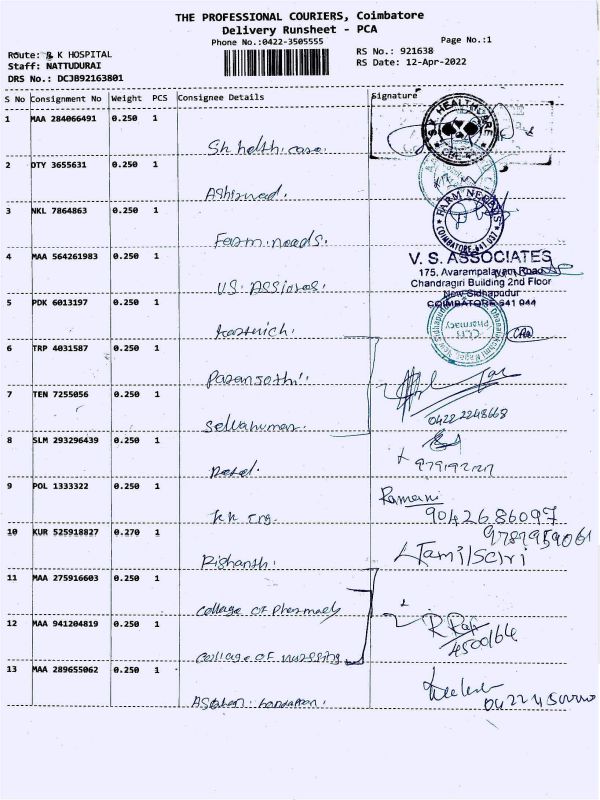 THE PROFESSIONAL COURIERS, Coimbatore
Delivery Runsheet - PCA
Phone No.:0422-3505555
Page No.:1
Route: R K HOSPITAL
Staff: NATTUDURAI
DRS No.: DCJB92163801
RS No.: 921638
RS Date: 12-Apr-2022
S No Consignment No Weight PCS Consignee Details Signature
1 MAA 284066491 0.250 1
Sk helth care.
S.K. HEALTHCARE
2 DTY 3655631 0.250 1
Ashirwad.
3 NKL 7864863 0.250 1
Farm needs.
FARM NEEDS
COIMBATORE 641 037
4 MAA 564261983 0.250 1
V.S. ASSOCIATES
175, Avarampalayam Road
Chandragiri Building 2nd Floor
New Sidhapudur
COIMBATORE 641 044
5 PDK 6013197 0.250 1
Pharmacy
6 TRP 4031587 0.250 1
7 TEN 7255056 0.250 1
Selvakumar.
04222248668
8 SLM 293296439 0.250 1
9 POL 1333322 0.250 1
Ramani
9042686097
10 KUR 525918827 0.270 1
Rishanth.
9789959061
Tamil Selvi
11 MAA 275916603 0.250 1
Collage of Pharmacy
12 MAA 941204819 0.250 1
Collage of nursing
4500164
13 MAA 289655062 0.250 1